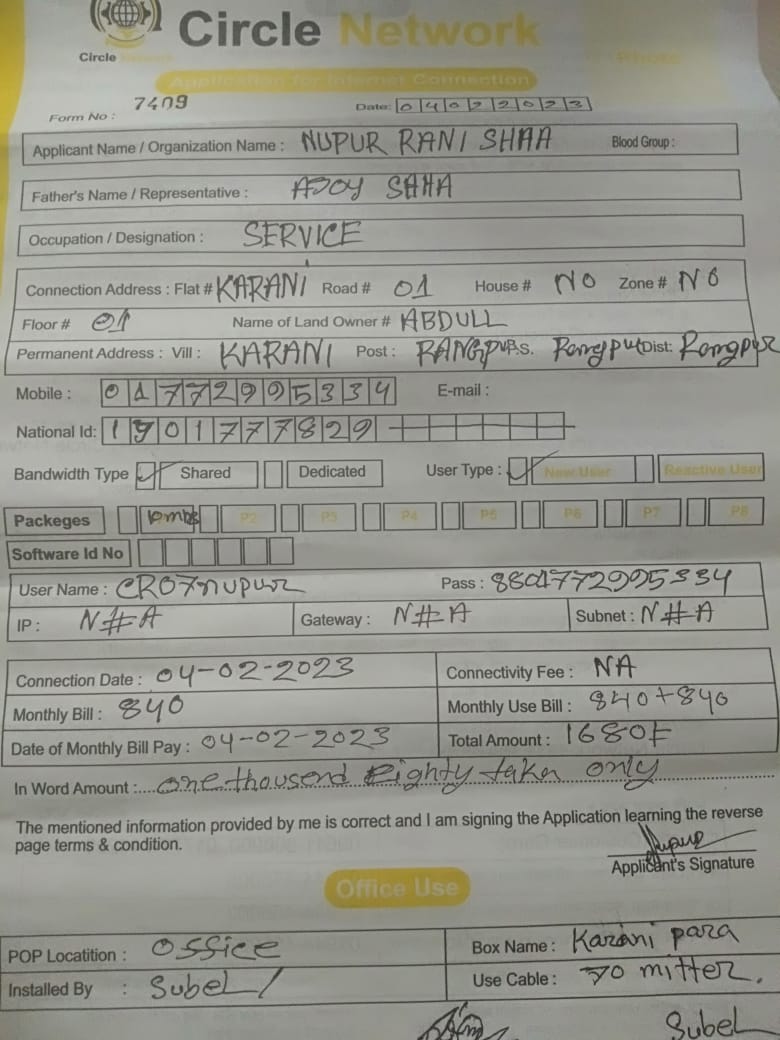 Circle Network
Circle
Application for Internet Connection
Form No : 7409 Date: 04022023
Applicant Name / Organization Name : NUPUR RANI SHAA Blood Group :
Father's Name / Representative : AJOY SAHA
Occupation / Designation : SERVICE
Connection Address : Flat # KARANI Road # 01 House # NO Zone # NO
Floor # 01 Name of Land Owner # ABDULL
Permanent Address : Vill : KARANI Post : RANGPUR P.S. Rangpur Dist: Rangpur
Mobile : 01772995334 E-mail :
National Id: 1901777829
Bandwidth Type Shared Dedicated User Type : New User Reactive User
Packeges 10mbs P2 P3 P4 P5 P6 P7 P8
Software Id No
User Name : CR07nupur Pass : 8801772995334
IP : N#A Gateway : N#A Subnet : N#A
Connection Date : 04-02-2023 Connectivity Fee : NA
Monthly Bill : 840 Monthly Use Bill : 840+840
Date of Monthly Bill Pay : 04-02-2023 Total Amount : 1680৳
In Word Amount : one thousend Eighty taka only
The mentioned information provided by me is correct and I am signing the Application learning the reverse
page terms & condition.
Nupur
Applicant's Signature
Office Use
POP Locatition : Office Box Name : Karani para
Installed By : Subel Use Cable : 70 mitter.
Subel